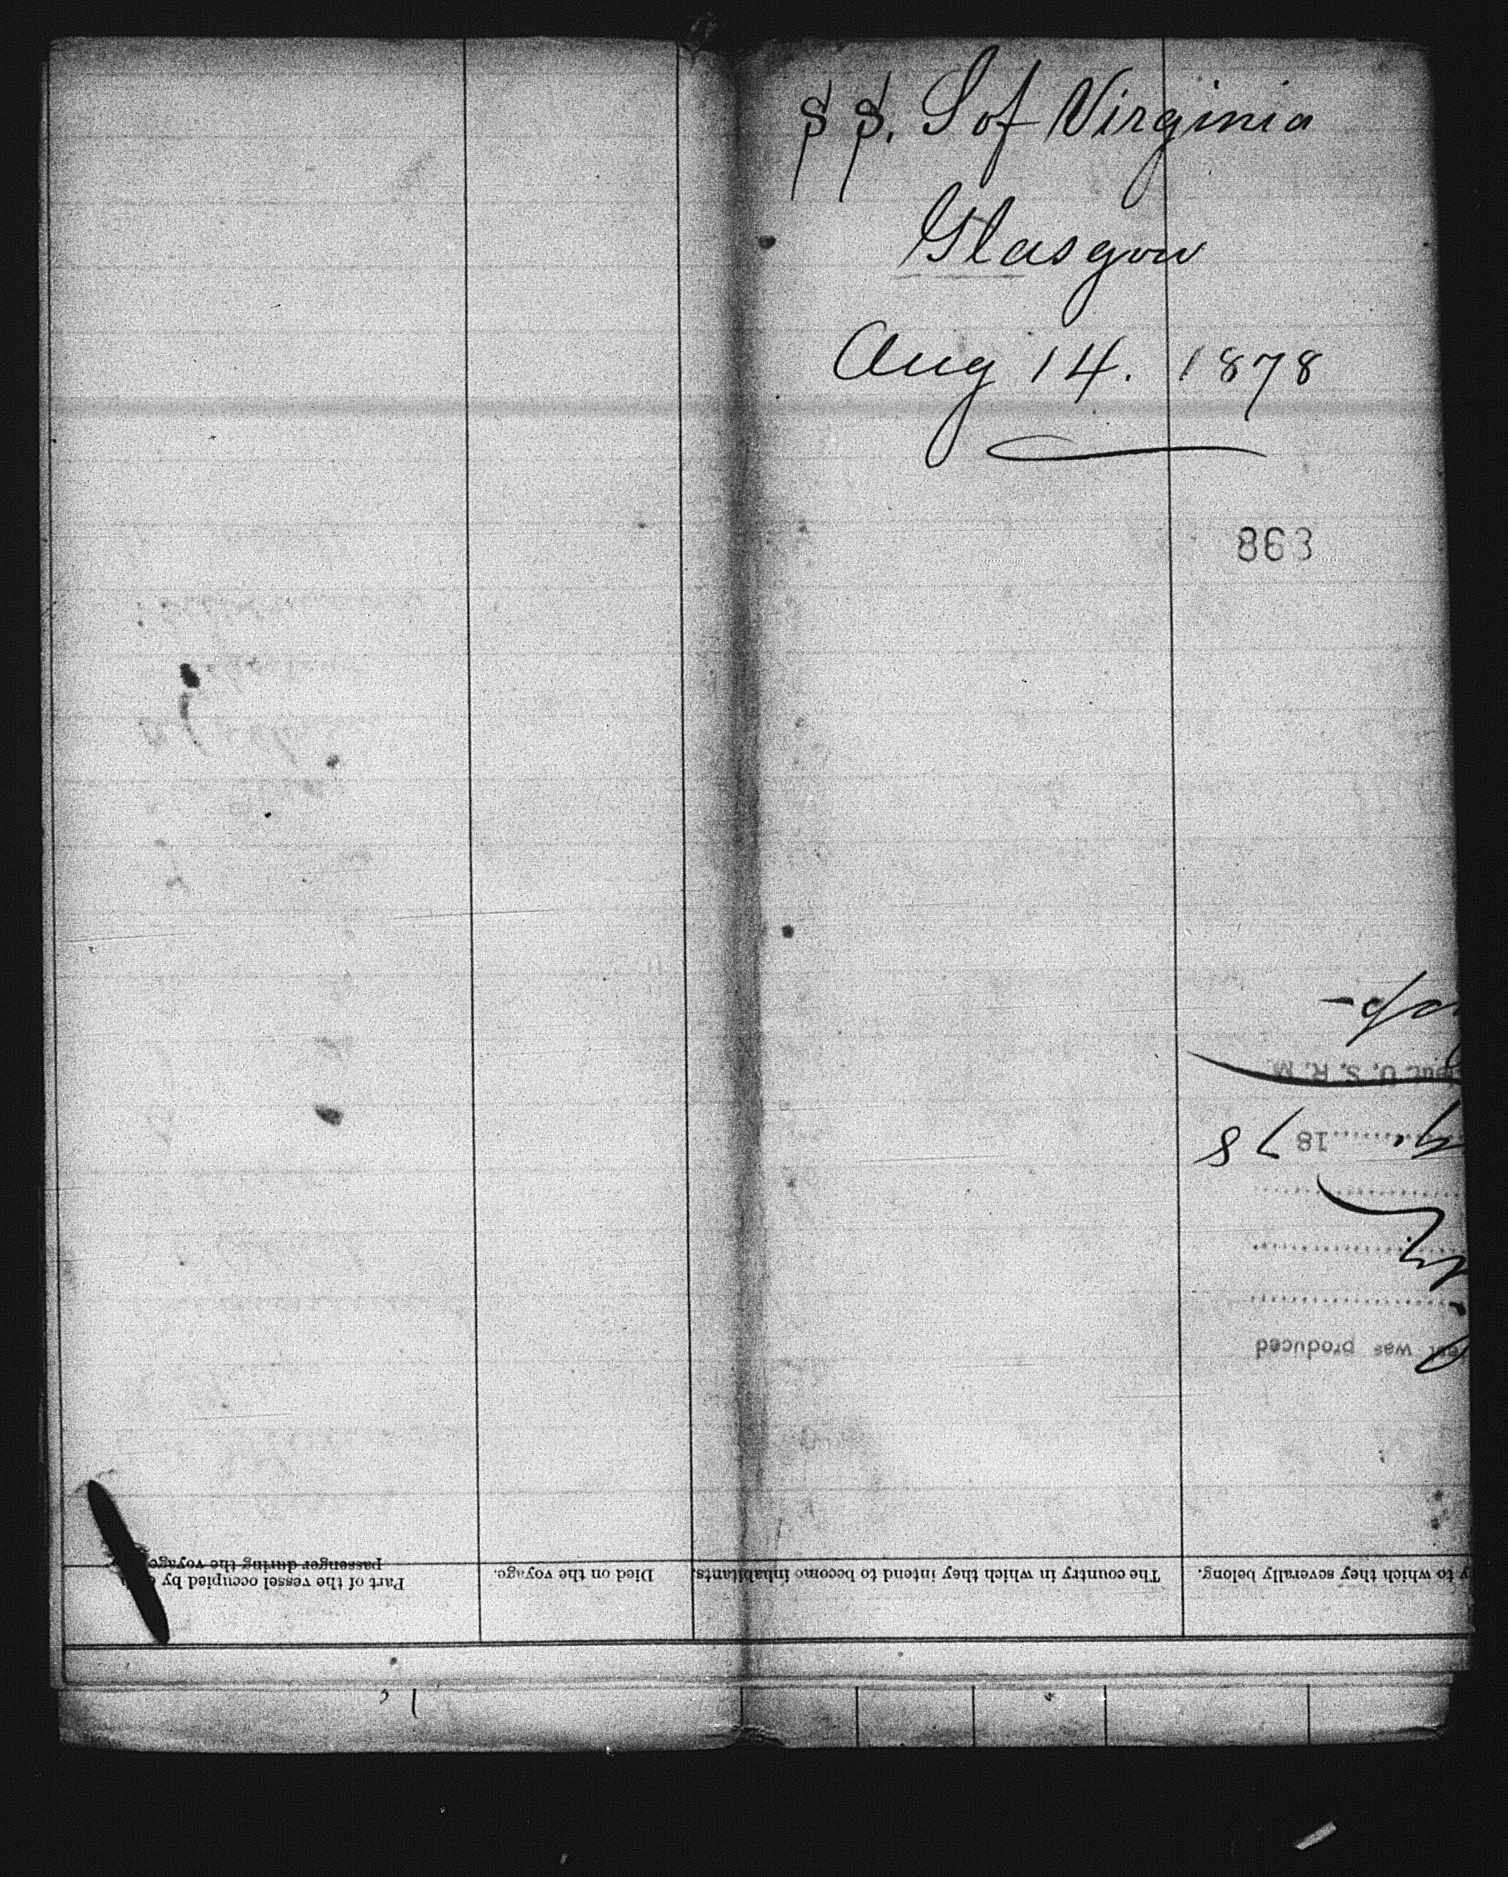 SS. S of Virginia
Glasgow
Aug 14. 1878
863
U. S. R. M.
18 78
was produced
Part of the vessel occupied by
passenger during the voyage
Died on the voyage.
The country in which they intend to become inhabitants.
to which they severally belong.